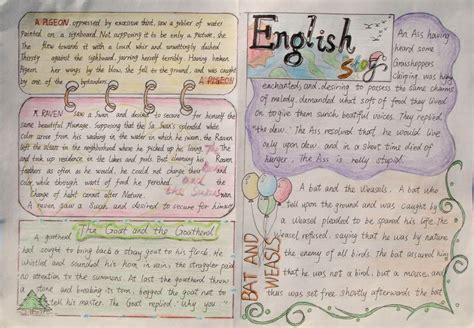 A PIGEON, oppressed by excessive thirst, saw a goblet of water
Painted on a signboard. Not supposing it to be only a picture, she
flew towards it with a loud whir and unwittingly dashed
against the signboard, jarring herself terribly. Having broken
her wings by the blow, she fell to the ground, and was caught
by one of the bystanders.
A PIGEON
A RAVEN saw a Swan and desired to secure for himself the
same beautiful plumage. Supposing that the Swan's splendid white
color arose from his washing in the water in which he swam, the Raven
left the altars in the neighborhood where he picked up his living,
and took up residence in the lakes and pools. But cleansing his
feathers as often as he would, he could not change their
color, while through want of food he perished.
Change of habit cannot alter Nature.
A RAVEN saw a Swan and desired to secure for himself
The Raven
and
the Swan
The Goat and the Goatherd
A goatherd
had sought to bring back a stray goat to his flock. He
whistled and sounded his horn in vain; the straggler paid
no attention to the summons. At last the goatherd threw
a stone and breaking its horn, begged the goat not to
tell his master. The Goat replied, "Why you
English
Story
An Ass having
heard some
Grasshoppers
Chirping, was
enchanted; and, desiring to possess the same charms
of melody, demanded what sort of food they lived
on to give them such beautiful voices. They replied,
"The dew." The Ass resolved that he would live
only upon dew, and in a short time died of
hunger. The Ass is really stupid.
A bat and the Weasels. A bat who
fell upon the ground and was caught by
a Weasel pleaded to be spared his life. The
weasel refused, saying that he was by nature
the enemy of all birds. The bat assured him
that he was not a bird, but a mouse, and
thus was set free. Shortly afterwards the bat
BAT AND
WEASLS